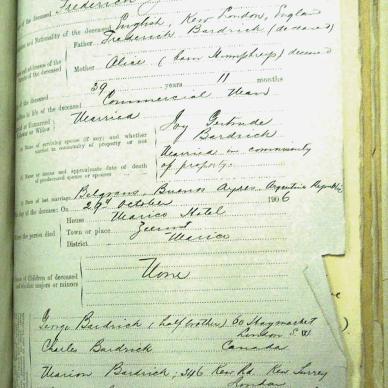 Frederick
of the deceased
and Nationality of the deceased English, Kew London, England
Father Frederick Bardrick (deceased)
Mother Alice (born Humphreys) deceased
of the deceased
of the deceased 39 years 11 months
in life of the deceased Commercial Man
Married
or Widow) Joy Gertrude
Name of surviving spouse (if any) and whether Bardrick
married in community of property or not Married in community
of property.
Name or names and approximate date of death
of predeceased spouse or spouses
of last marriage Belgrano, Buenos Ayres, Argentine Republic
day of the deceased: On 29th October 1906
House Marico Hotel
the person died Town or place Zeerust
District Marico
of Children of deceased
whether majors or minors None
George Bardrick (half brother) 60 Haymarket
London S.W
Charles Bardrick Canada
Marion Bardrick; 346 Kew Rd. Kew Surrey
London